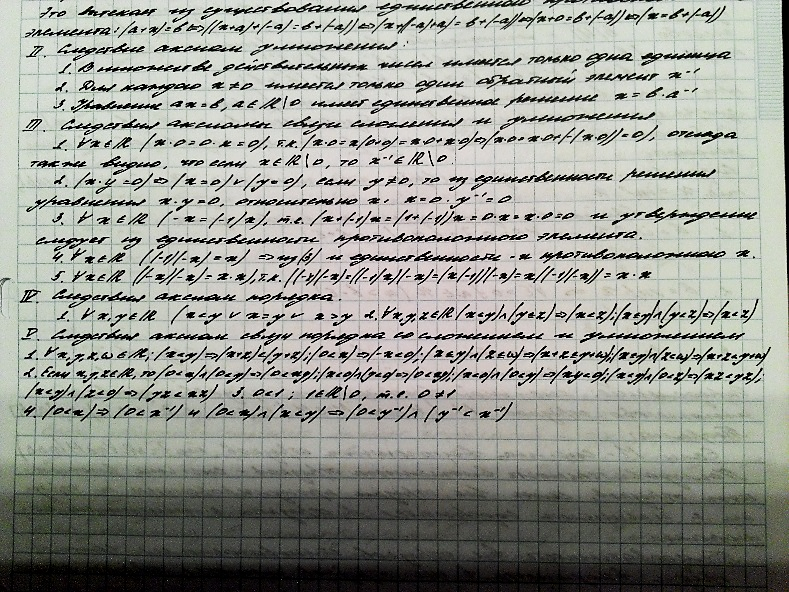 Это вытекает из существования единственного
элемента: (a+x)=b⇔((x+a)+(-a)=b+(-a))⇔(x+(a+(-a))=b+(-a))⇔(x+0=b+(-a))⇔(x=b+(-a))
II. Следствие аксиом умножения:
1. В множестве действительных чисел имеется только одна единица
2. Для каждого x≠0 имеется только один обратный элемент x⁻¹
3. Уравнение ax=b, a∈ℝ\0 имеет единственное решение x=b·a⁻¹
III. Следствия аксиомы связи сложения и умножения
1. ∀x∈ℝ (x·0=0·x=0), т.к. (x·0=x(0+0)=x·0+x·0)⇒(x·0=x·0+(-(x·0))=0), отсюда
также видно, что если x∈ℝ\0, то x⁻¹∈ℝ\0
2. (x·y=0)⇒(x=0)∨(y=0), если y≠0, то из единственности решения
уравнения x·y=0, относительно x: x=0·y⁻¹=0
3. ∀x∈ℝ (-x=(-1)x), т.е. (x+(-1)x=(1+(-1))x=0·x=x·0=0 и утверждение
следует из единственности противоположного элемента.
4. ∀x∈ℝ ((-1)(-x)=x) ⇒ из (3) и единственности -x противоположного x.
5. ∀x∈ℝ ((-x)(-x)=x·x), т.к. ((-x)(-x)=((-1)x)(-x)=(x(-1))(-x)=x((-1)(-x))=x·x
IV. Следствия аксиом порядка.
1. ∀x,y∈ℝ (x<y ∨ x=y ∨ x>y 2. ∀x,y,z∈ℝ (x<y)∧(y≤z)⇒(x<z); (x≤y)∧(y<z)⇒(x<z)
V. Следствия аксиом связи порядка со сложением и умножением
1. ∀x,y,z,ω∈ℝ; (x<y)⇒(x+z)<(y+z); (0<x)⇒(-x<0); (x≤y)∧(z≤ω)⇒(x+z≤y+ω); (x≤y)∧(z<ω)⇒(x+z<y+ω)
2. Если x,y,z∈ℝ, то (0<x)∧(0<y)⇒(0<xy); (x<0)∧(y<0)⇒(0<xy); (x<0)∧(0<y)⇒(xy<0); (x<y)∧(0<z)⇒(xz<yz);
(x<y)∧(z<0)⇒(yz<xz) 3. 0<1; 1∈ℝ\0, т.е. 0≠1
4. (0<x)⇒(0<x⁻¹) и (0<x)∧(x<y)⇒(0<y⁻¹)∧(y⁻¹<x⁻¹)